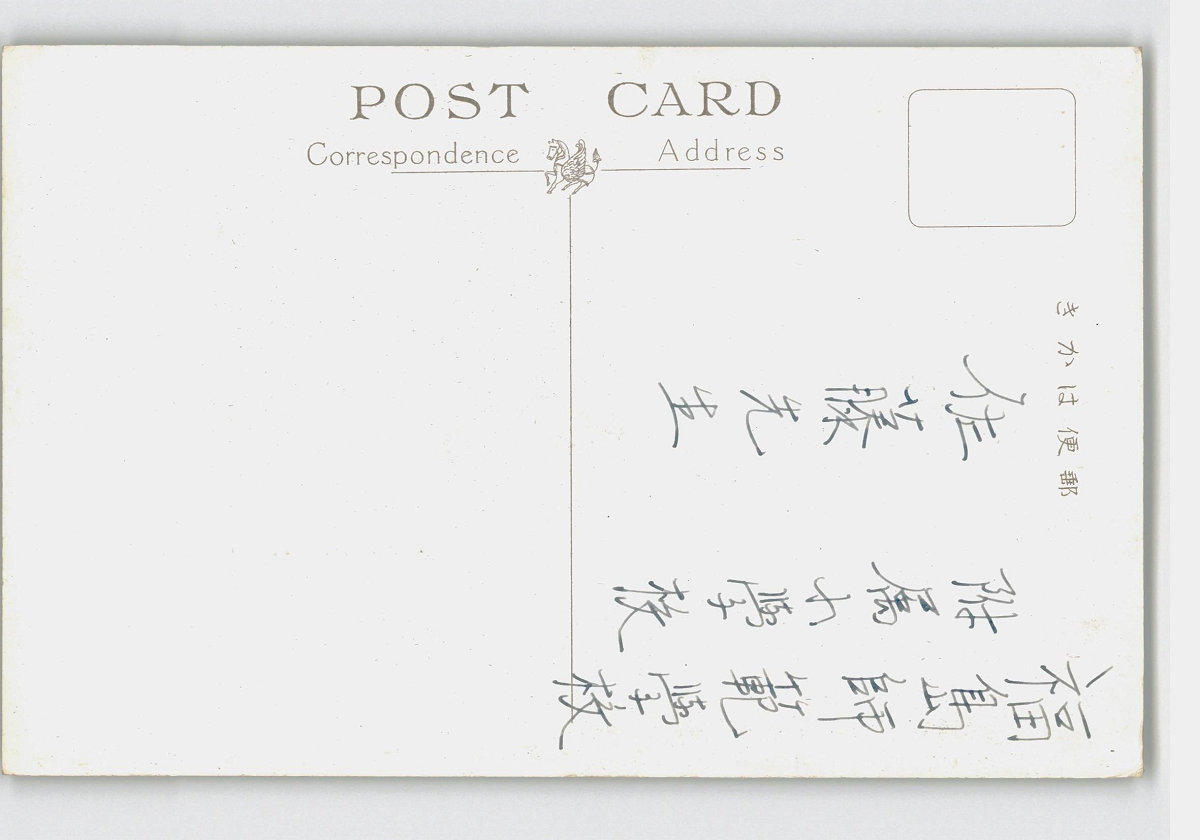 POST CARD
Correspondence
Address
きかは便郵
福島師範學校
附属小學校
佐藤先生